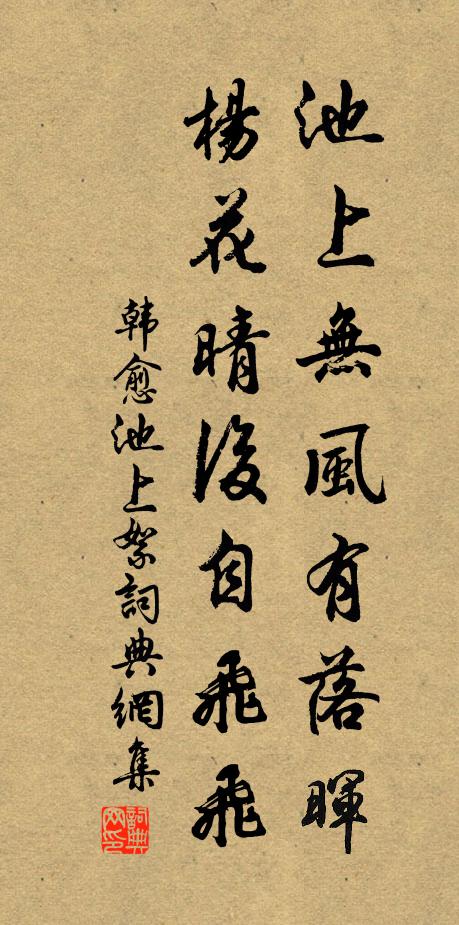 池上無風有落暉
楊花晴後自飛飛
韓愈池上絮詞典網集
詞典網印